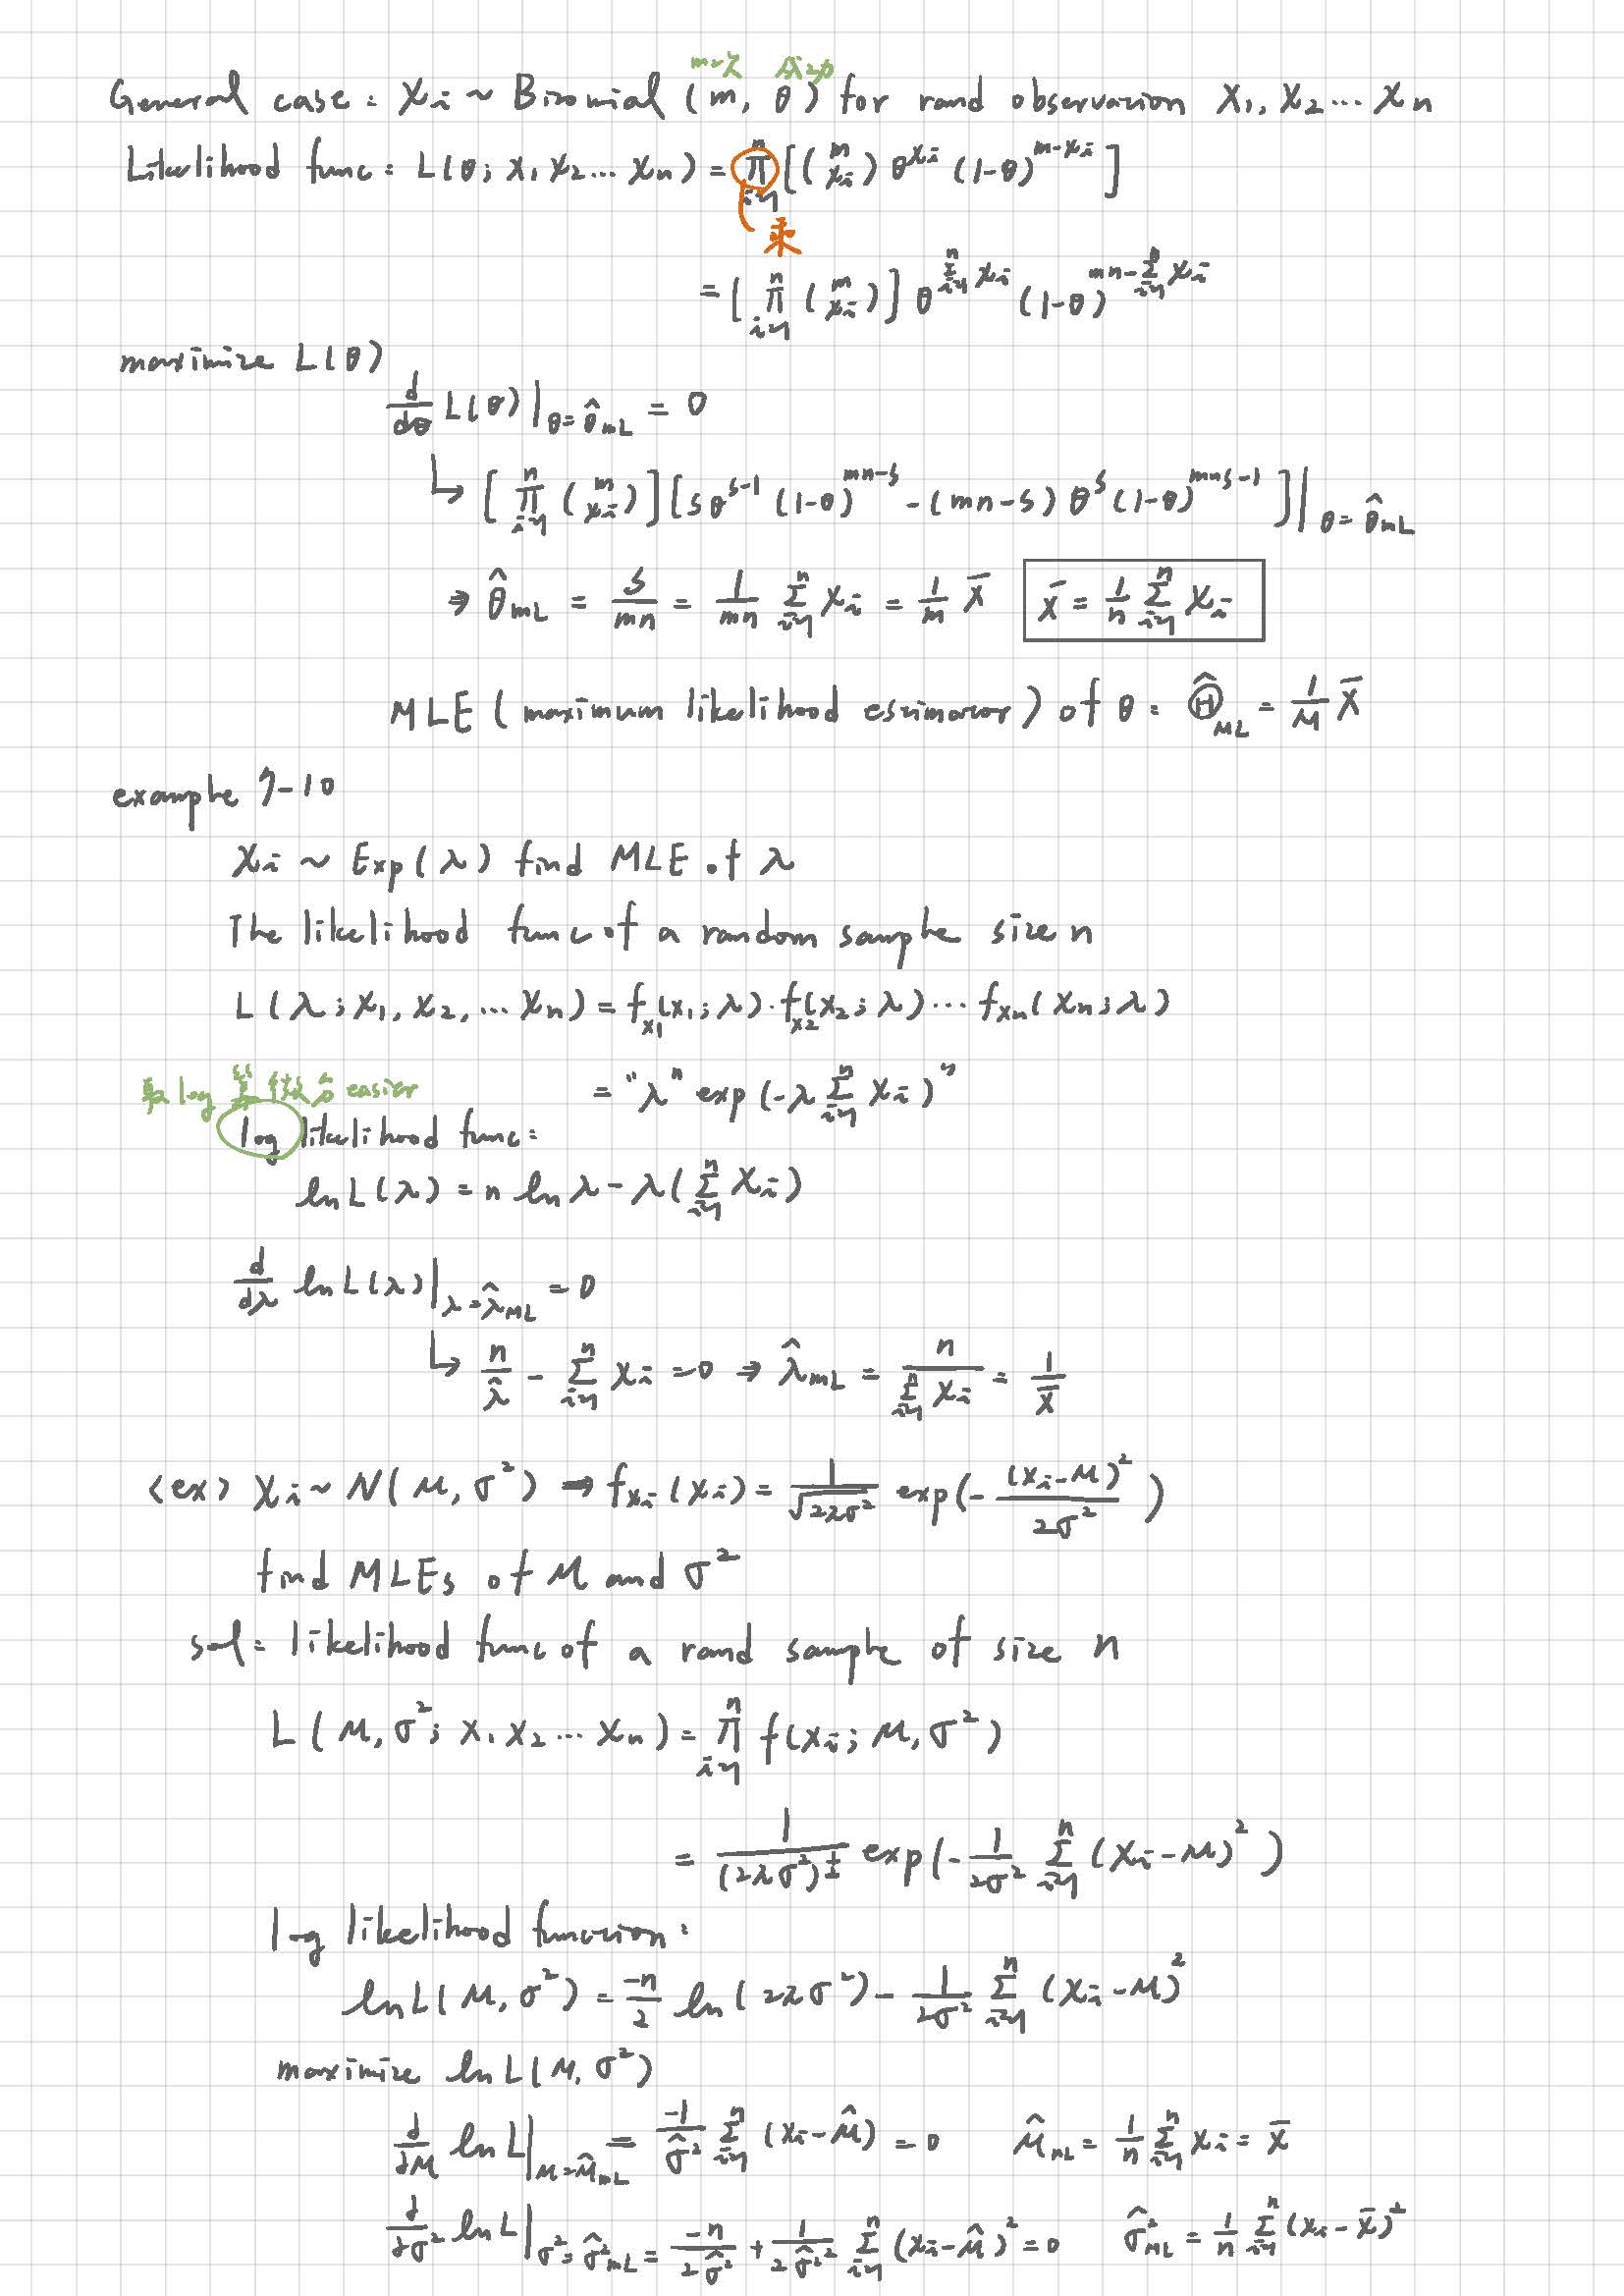 m次 成功
General case: Xi ~ Binomial (m, θ) for rand observation X1, X2 ... Xn
Likelihood func: L(θ; x1 x2 ... xn) = π_{i=1}^{n} [(m xi) θ^{xi} (1-θ)^{m-xi}]
乘
= [π_{i=1}^{n} (m xi)] θ^{Σ_{i=1}^{n} xi} (1-θ)^{mn-Σ_{i=1}^{n} xi}
maximize L(θ)
d/dθ L(θ)|_{θ=θ̂_{mL}} = 0
↳ [π_{i=1}^{n} (m xi)][sθ^{s-1} (1-θ)^{mn-s} - (mn-s) θ^{s} (1-θ)^{mn-s-1}]|_{θ=θ̂_{mL}}
⇒ θ̂_{mL} = s/mn = 1/mn Σ_{i=1}^{n} xi = 1/m x̄ x̄ = 1/n Σ_{i=1}^{n} xi
MLE (maximum likelihood estimator) of θ: Θ̂_{ML} = 1/M X̄
example 7-10
Xi ~ Exp(λ) find MLE of λ
The likelihood func of a random sample size n
L(λ; x1, x2, ... xn) = f_{x1}(x1; λ) · f_{x2}(x2; λ) ... f_{xn}(xn; λ)
= "λ^{n} exp(-λ Σ_{i=1}^{n} xi)"
取 log 算微分 easier
log likelihood func:
ln L(λ) = n ln λ - λ(Σ_{i=1}^{n} xi)
d/dλ ln L(λ)|_{λ=λ̂_{ML}} = 0
↳ n/λ̂ - Σ_{i=1}^{n} xi = 0 ⇒ λ̂_{mL} = n/Σ_{i=1}^{n} xi = 1/x̄
<ex> Xi ~ N(μ, σ²) ⇒ f_{xi}(xi) = 1/√(2πσ²) exp(-(xi-μ)²/2σ²)
find MLEs of μ and σ²
sol: likelihood func of a rand sample of size n
L(μ, σ²; x1 x2 ... xn) = π_{i=1}^{n} f(xi; μ, σ²)
= 1/(2πσ²)^{n/2} exp(-1/2σ² Σ_{i=1}^{n} (xi-μ)²)
log likelihood function:
ln L(μ, σ²) = -n/2 ln(2πσ²) - 1/2σ² Σ_{i=1}^{n} (xi-μ)²
maximize ln L(μ, σ²)
∂/∂μ ln L|_{μ=μ̂_{mL}} = -1/σ̂² Σ_{i=1}^{n} (xi-μ̂) = 0 μ̂_{mL} = 1/n Σ_{i=1}^{n} xi = x̄
∂/∂σ² ln L|_{σ²=σ̂²_{mL}} = -n/2σ̂² + 1/2σ̂²² Σ_{i=1}^{n} (xi-μ̂)² = 0 σ̂²_{ML} = 1/n Σ_{i=1}^{n} (xi-x̄)²